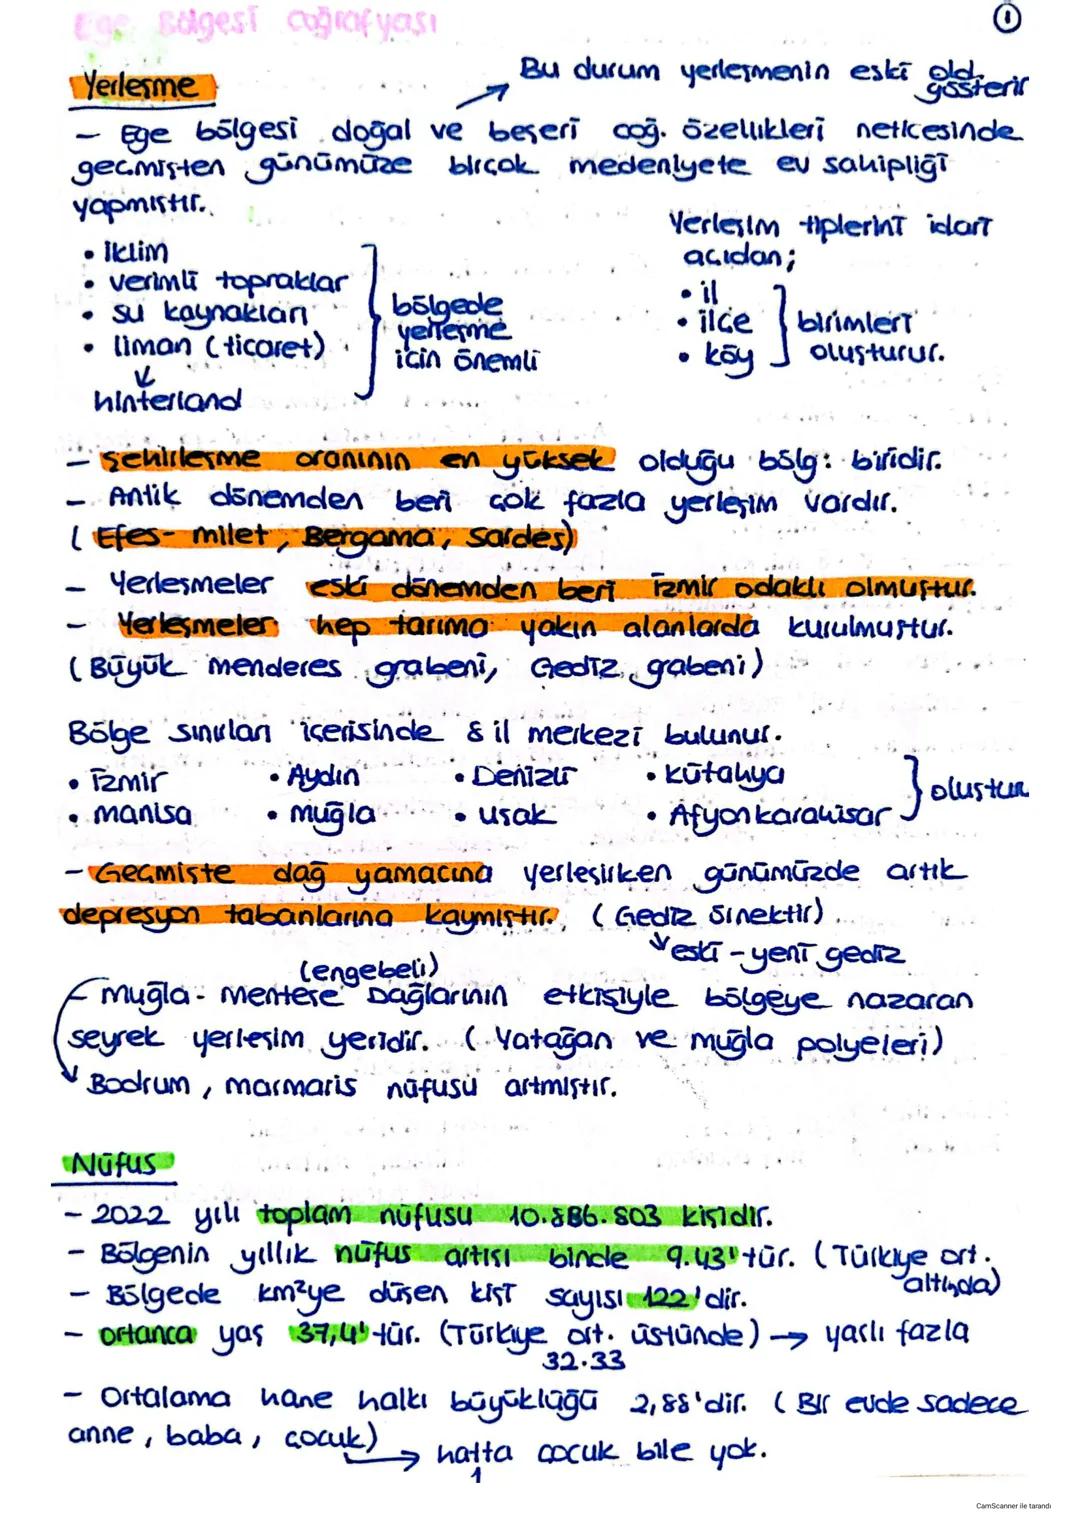 Ege Bölgesi Coğrafyası
1
Yerleşme
Bu durum yerleşmenin eski old. gösterir
- Ege bölgesi doğal ve beşeri coğ. özellikleri neticesinde
geçmişten günümüze birçok medeniyete ev sahipliği
yapmıştır.
• iklim
• verimli topraklar
• su kaynakları
• liman (ticaret)
hinterland
bölgede
yerleşme
için önemli
Yerleşim tiplerini idari
açıdan;
• il
• ilçe
• köy
birimleri
oluşturur.
- Şehirleşme oranının en yüksek olduğu bölg: biridir.
- Antik dönemden beri çok fazla yerleşim vardır.
(Efes- milet, Bergama, Sardes)
- Yerleşmeler eski dönemden beri izmir odaklı olmuştur.
- Yerleşmeler hep tarıma yakın alanlarda kurulmuştur.
(Büyük menderes grabeni, Gediz grabeni)
Bölge sınırları içerisinde 8 il merkezi bulunur.
• izmir • Aydın • Denizli • kütahya
• manisa • muğla • uşak • Afyonkarahisar
oluşturur
- Geçmişte dağ yamacına yerleşirken günümüzde artık
depresyon tabanlarına kaymıştır. (Gediz örnektir)
eski - yeni gediz
(engebeli)
- muğla - menteşe Dağlarının etkisiyle bölgeye nazaran
seyrek yerleşim yeridir. (Yatağan ve muğla polyeleri)
Bodrum, marmaris nüfusu artmıştır.
Nüfus
- 2022 yılı toplam nüfusu 10.886.803 kişidir.
- Bölgenin yıllık nüfus artışı binde 9.43'tür. (Türkiye ort.
altında)
- Bölgede km²ye düşen kişi sayısı 122'dir.
- ortanca yaş 37,4'tür. (Türkiye ort. üstünde) → yaşlı fazla
32.33
- Ortalama hane halkı büyüklüğü 2,88'dir. (Bir evde sadece
anne, baba, çocuk)
hatta çocuk bile yok.
1
CamScanner ile tarandı